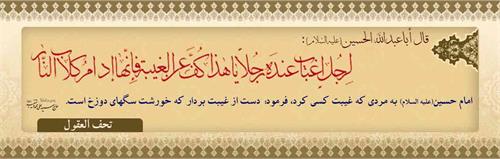 قال أباعبدالله الحسین (علیه السلام):
لرجل إغتاب عنده رجلا یا هذا کف عن الغیبة فإنها إدام کلاب النار
امام حسین (علیه السلام) به مردی که غیبت کسی کرد، فرمود: دست از غیبت بردار که خورشت سگهای دوزخ است.
تحف العقول